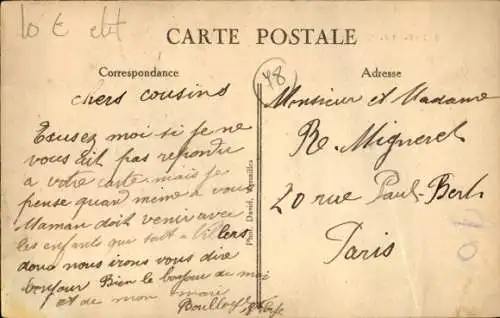 10 € elt
CARTE POSTALE
Correspondance
Adresse
48
chers cousins
Excusez moi si je ne
vous ait pas repondu
a votre carte mais je
pense quand même a vous
Maman doit venir avec
les enfants que sont a Villers
donc nous irons vous dire
bonjour Bien le bonjour de moi
et de mon mari
Phot. David,
Monsieur et Madame
Re. Migneret
20 rue Paul Bert
Paris
10